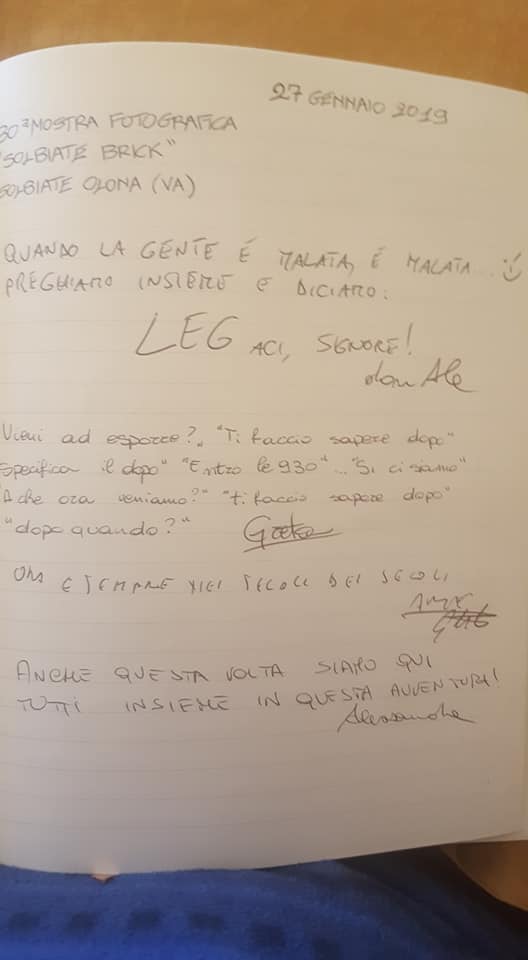 27 GENNAIO 2019
30ª MOSTRA FOTOGRAFICA
"SOLBIATE BRICK"
SOLBIATE OLONA (VA)
QUANDO LA GENTE É MALATA, É MALATA... :)
PREGHIAMO INSIEME E DICIAMO:
LEG ACI, SIGNORE!
don Ale
Vieni ad esporre?" "Ti faccio sapere dopo"
specifica il dopo" "Entro le 930"... "Si ci siamo"
"A che ora veniamo?" "ti faccio sapere dopo"
"dopo quando?" Greta
ORA E SEMPRE NEI SECOLI DEI SECOLI
ANCHE QUESTA VOLTA SIAMO QUI
TUTTI INSIEME IN QUESTA AVVENTURA!
Alessandra